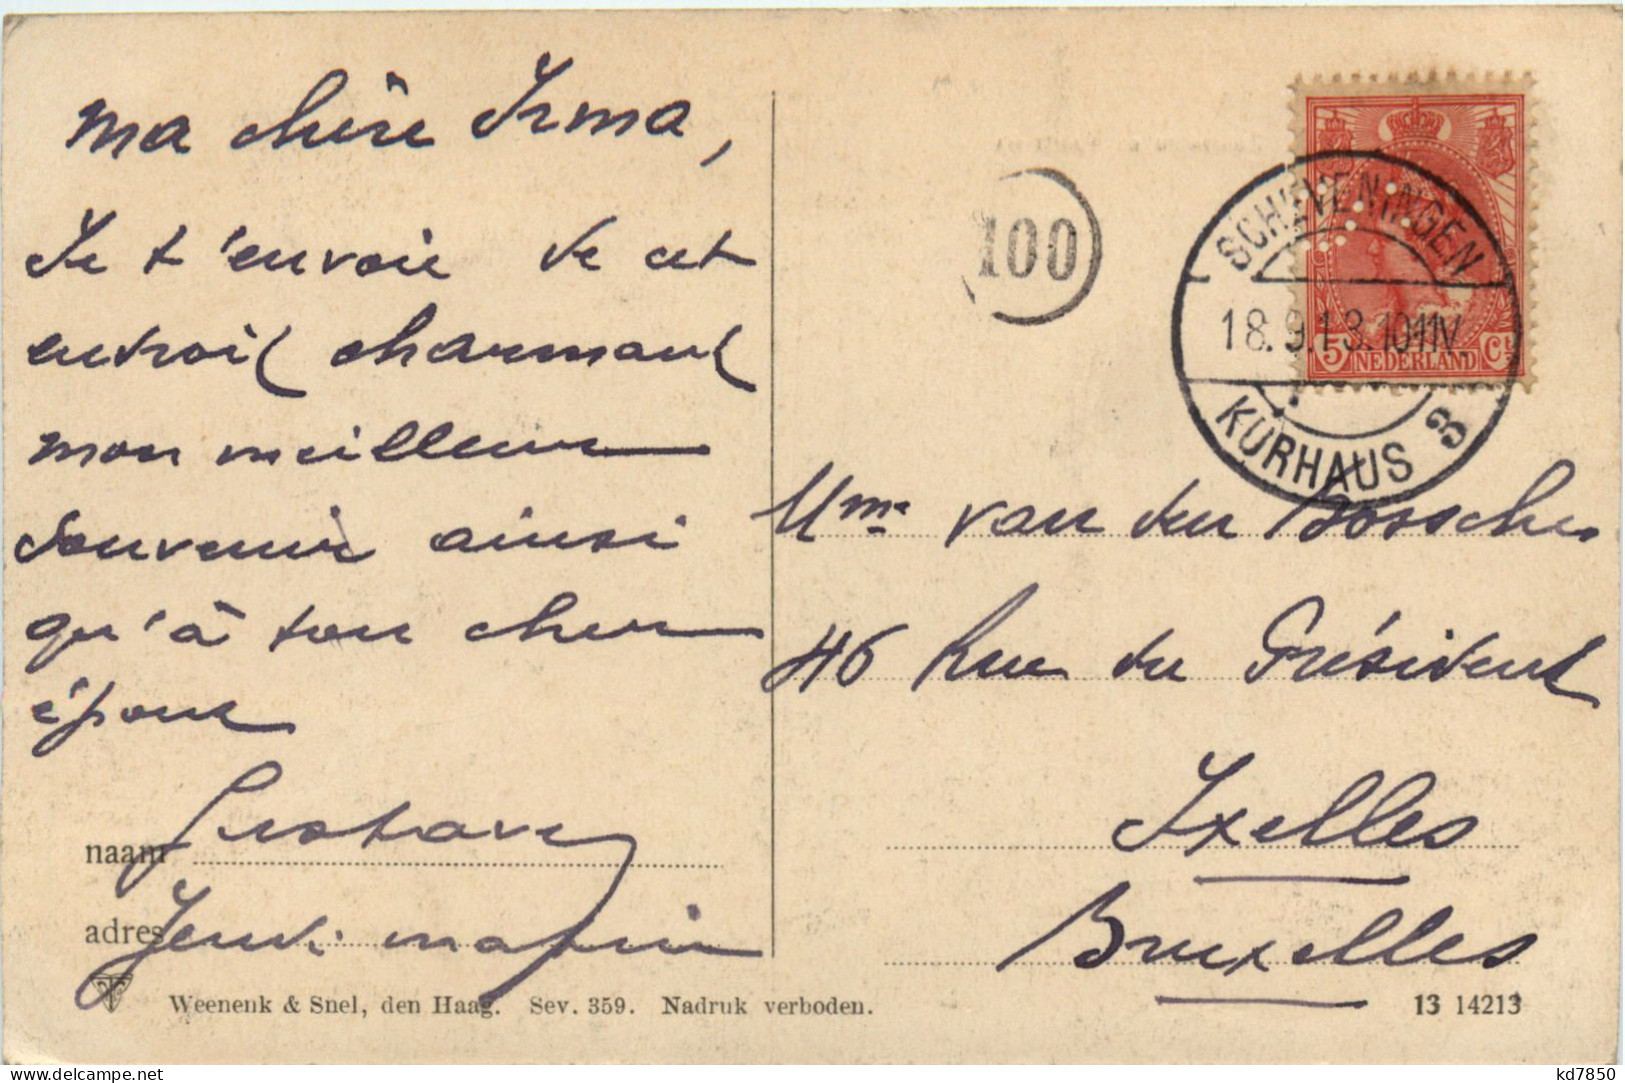 ma chère Irma,
Je t'envoie de cet
endroit charmant
mon meilleur
souvenir ainsi
qu'à ton cher
époux
Gustave
naam
adres
Jeudi matin
Weenenk & Snel, den Haag. Sev. 359. Nadruk verboden.
100
SCHEVENINGEN
18.9.13.1011V.
KURHAUS 3
5 NEDERLAND Ct
Mme van den Bossche
46 Rue du Président
Ixelles
Bruxelles
13 14213
delcampe.net
kd7850